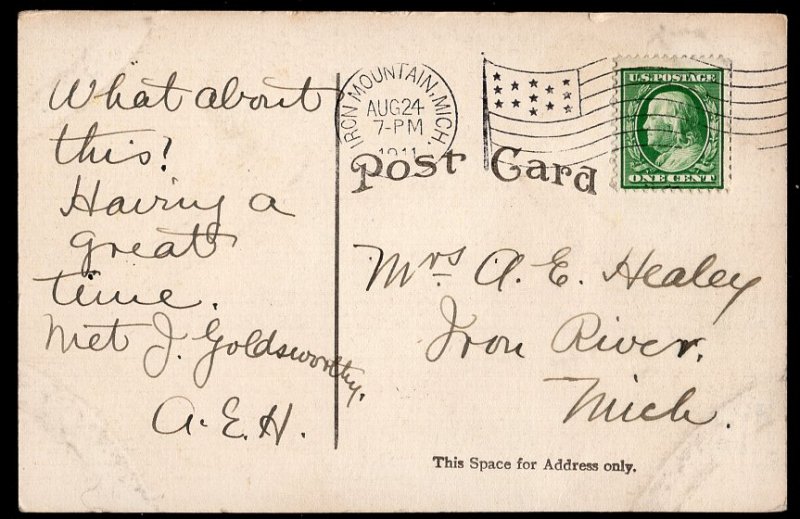 What about
this?
Having a
great
time.
Met J. Goldsworthy.
A.E.H.
IRON MOUNTAIN, MICH.
AUG 24
7-PM
1911
U.S. POSTAGE
ONE CENT
Post Card
Mrs A. E. Healey
Iron River.
Mich.
This Space for Address only.